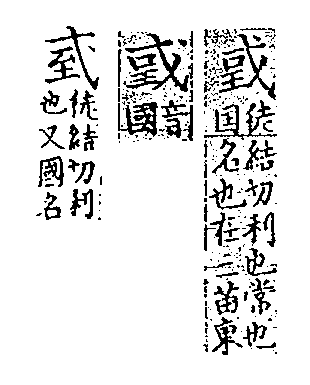 戜
徒結切利也常也
国名也在三苗東
戜
音
國
徒結切利
也又國名